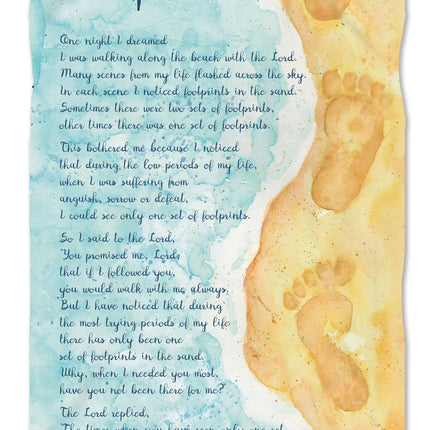 One night I dreamed
I was walking along the beach with the Lord.
Many scenes from my life flashed across the sky.
In each scene I noticed footprints in the sand.
Sometimes there were two sets of footprints,
other times there was one set of footprints.
This bothered me because I noticed
that during the low periods of my life,
when I was suffering from
anguish, sorrow or defeat,
I could see only one set of footprints.
So I said to the Lord,
"You promised me, Lord,
that if I followed you,
you would walk with me always.
But I have noticed that during
the most trying periods of my life
there has only been one
set of footprints in the sand.
Why, when I needed you most,
have you not been there for me?"
The Lord replied,
"The times when you have seen only one set